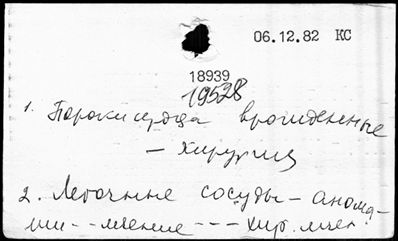 06.12.82 КС
18939
19528
1. Пороки сердца врожденные
— хирургия
2. Легочные сосуды — анома-
лии -- лечение --- хир. лечен.